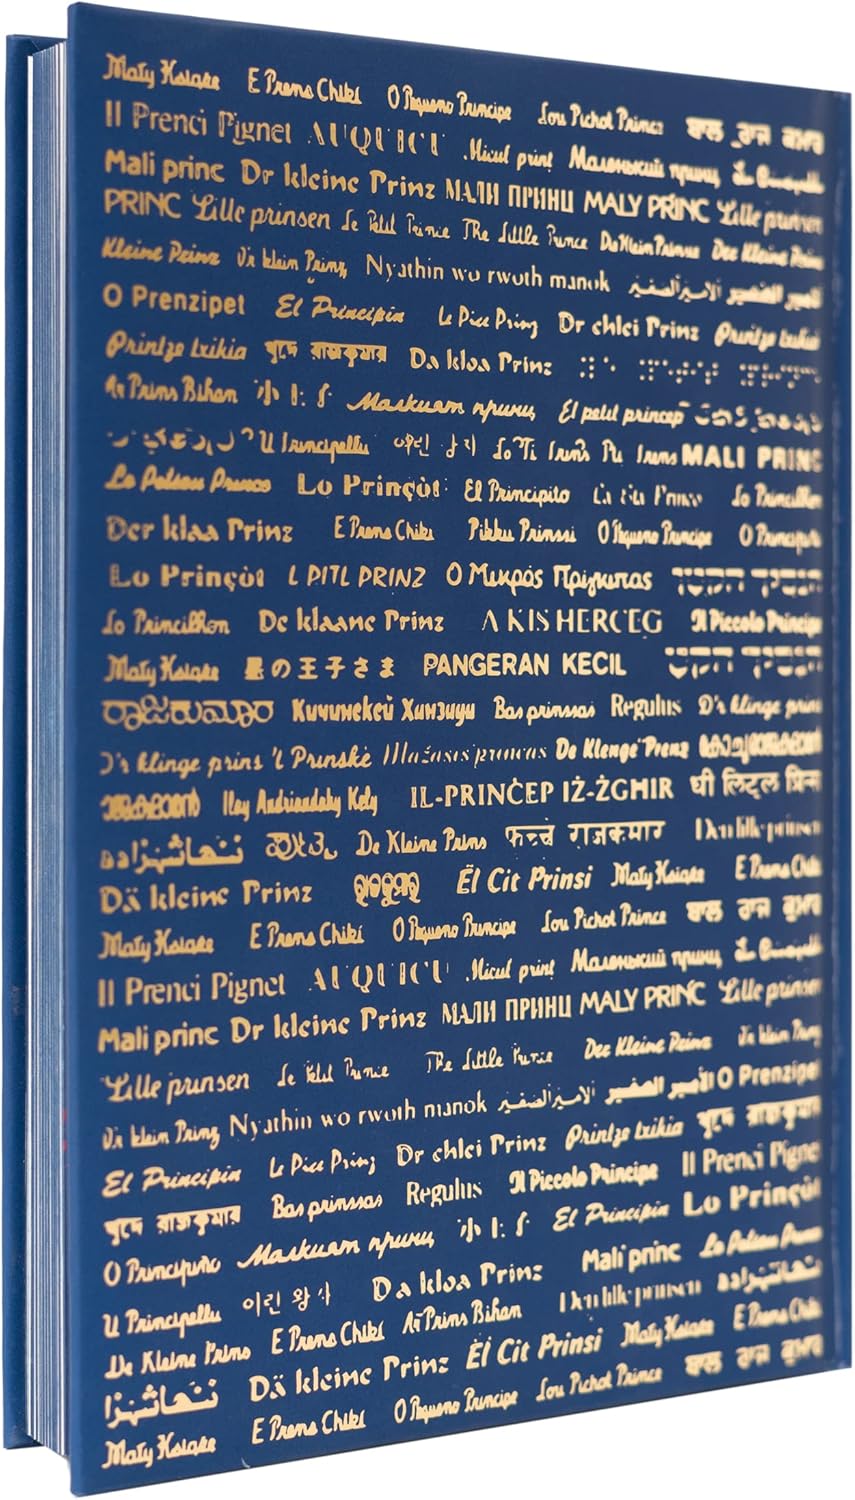 Mały Książę E Prens Chikí O Pequeno Príncipe Lou Pichot Prince
Il Prenci Pignet AUQUICU Micul prinț Маленький принц
Mali princ Dr kleine Prinz МАЛИ ПРИНЦ MALY PRINC Lille prinsen
PRINC Lille prinsen Le Petit Prince The Little Prince Da Klein Prinz Der Kleine Prinz
Kleine Prinz D'r klein Prinz Nyathin wo rwoth manok الأمير الصغير
O Prenzipet El Principin Le Pice Prinz Dr chlei Prinz Printze txikia
Printze txikia খুদে রাজকুমার Da kloa Prinz
Ar Priñs Bihan 小王子 Малкият принц El petit príncep
U Principellu 어린 왕자 MALI PRINC
Lo Prinçòt El Principito Lo Princilhon
Der klaa Prinz E Prens Chikí Pikku Prinssi O Pequeno Príncipe
Lo Prinçòt L PITL PRINZ Ο Μικρός Πρίγκιπας
Lo Princilhon De klaane Prinz A KIS HERCEG Il Piccolo Principe
Mały Książę 星の王子さま PANGERAN KECIL
Кичинекей Ханзада Bas prinssas Regulus D'r klinge prins
D'r klinge prins 't Prinske Mažasis princas De Klenge Prenz
Ilay Andriandahy Kely IL-PRINĊEP IŻ-ŻGĦIR धी लिटल प्रिन्स
De Kleine Prins Den lille prinsen
Dä kleine Prinz Ël Cit Prinsi Mały Książę E Prens Chikí
Mały Książę E Prens Chikí O Pequeno Príncipe Lou Pichot Prince
Il Prenci Pignet AUQUICU Micul prinț Маленький принц
Mali princ Dr kleine Prinz МАЛИ ПРИНЦ MALY PRINC Lille prinsen
Lille prinsen Le Petit Prince The Little Prince Der Kleine Prinz
D'r klein Prinz Nyathin wo rwoth manok الأمير الصغير O Prenzipet
El Principin Le Pice Prinz Dr chlei Prinz Printze txikia
খুদে রাজকুমার Bas prinssas Regulus Il Piccolo Principe Il Prenci Pignet
O Principiño Малкият принц 小王子 El Principin Lo Prinçòt
U Principellu 어린 왕자 Da kloa Prinz Mali princ
De Kleine Prins E Prens Chikí Ar Priñs Bihan Den lille prinsen
Dä kleine Prinz Ël Cit Prinsi Mały Książę E Prens Chikí
Mały Książę E Prens Chikí O Pequeno Príncipe Lou Pichot Prince